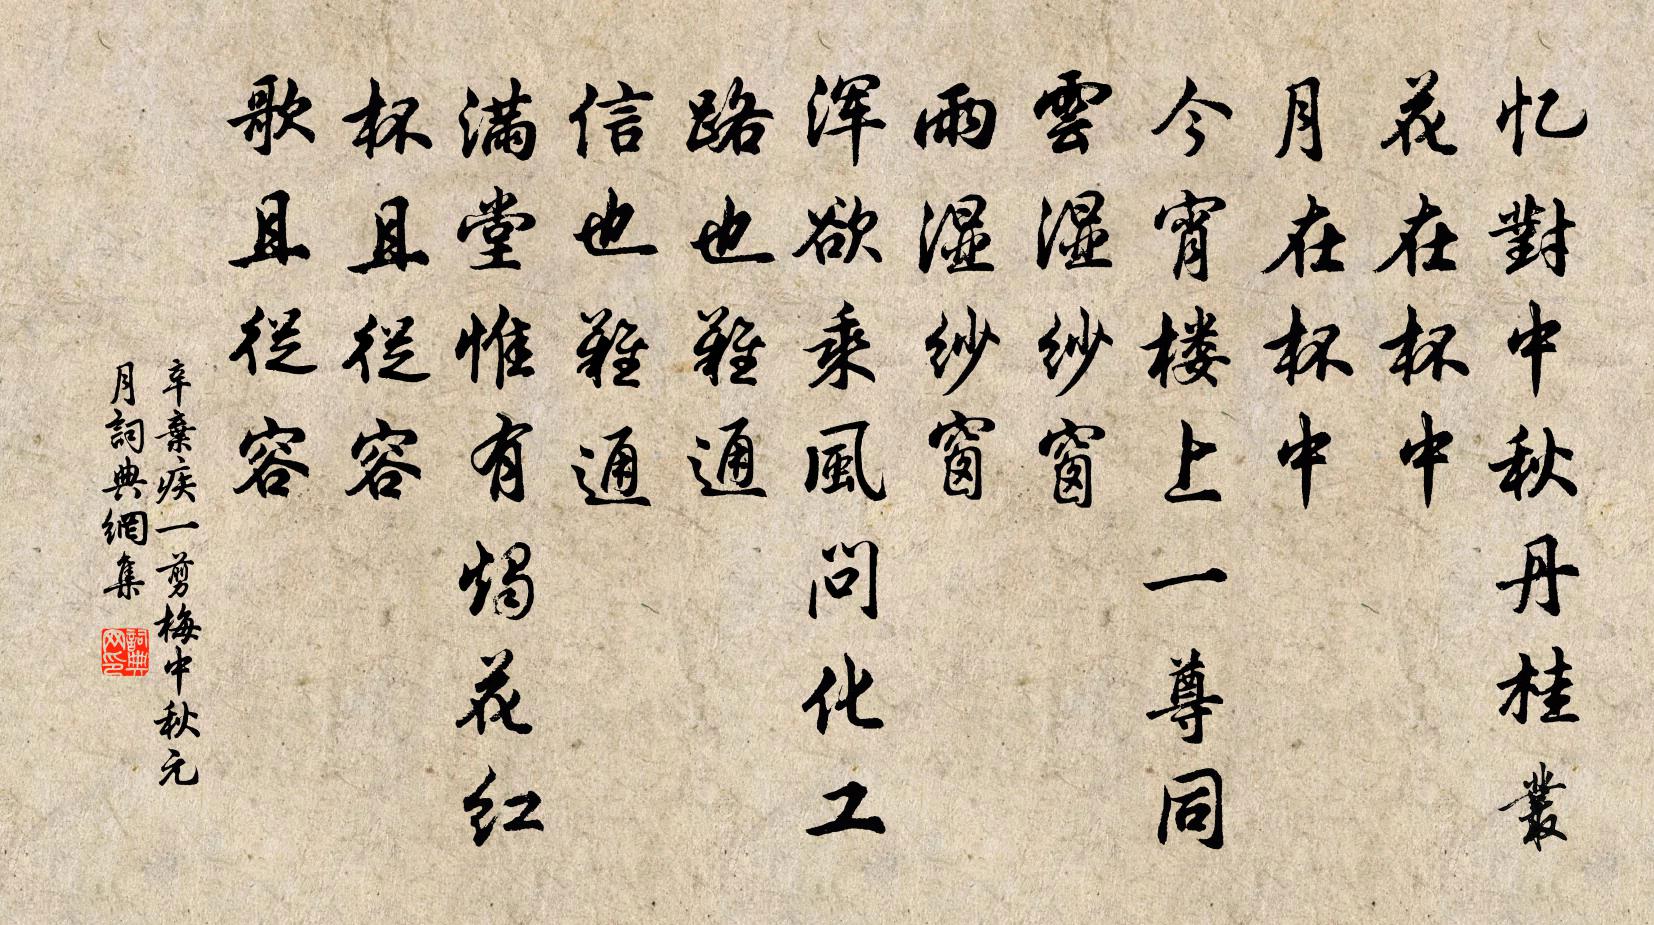 忆對中秋丹桂叢
花在杯中
月在杯中
今宵楼上一尊同
雲湿紗窗
雨湿紗窗
浑欲乘風問化工
路也難通
信也難通
满堂惟有燭花红
杯且從容
歌且從容
辛棄疾一剪梅中秋元
月詞典網集
詞典网印